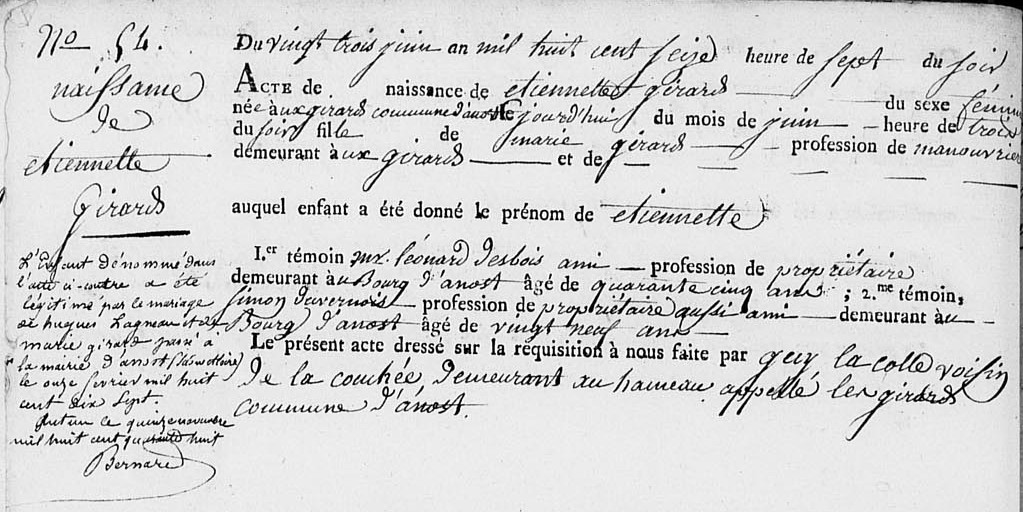 No 54.
naissance
de
etiennette
Girard
L'Enfant dénommé dans
l'acte ci-contre a été
légitimé par le mariage
de hugues Lagneau et de
marie girard passé à
la mairie d'anost (Saône et Loire)
le onze fevrier mil huit
cent dix sept.
Autun ce quinze novembre
mil huit cent quarante huit
Bernard
Du vingt trois juin an mil huit cent seize heure de sept du soir
ACTE de naissance de etiennette girard du sexe féminin
née aux girards commune d'anost le jourd'hui du mois de juin heure de trois
du soir fille de marie girard profession de manouvrier
demeurant aux girards et de
auquel enfant a été donné le prénom de etiennette
I.er témoin mr. léonard desbois ami profession de propriétaire
demeurant au Bourg d'anost âgé de quarante cinq ans ; 2.me témoin,
simon duvernois profession de propriétaire aussi ami demeurant au
Bourg d'anost âgé de vingt neuf ans
Le présent acte dressé sur la requisition à nous faite par guy la colle voisin
de la couchée, demeurant au hameau appellé les girards
commune d'anost.